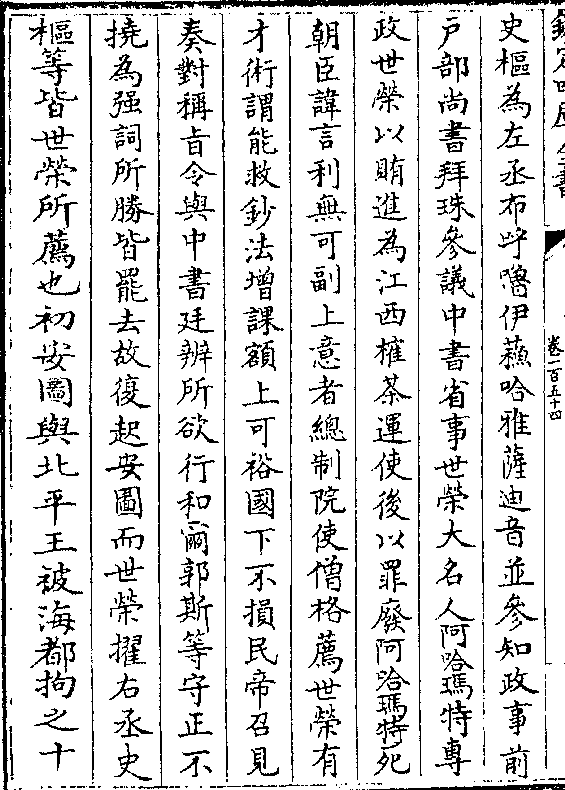 欽定四庫全書
卷一百五十四
史樞為左丞布哷嚕伊蘓哈雅薩迪音並參知政事前
戶部尚書拜珠參議中書省事世榮大名人阿哈瑪特專
政世榮以賄進為江西榷茶運使後以罪廢阿哈瑪特死
朝臣諱言利無可副上意者總制院使僧格薦世榮有
才術謂能救鈔法增課額上可裕國下不損民帝召見
奏對稱旨令與中書廷辨所欲行和爾郭斯等守正不
撓為强詞所勝皆罷去故復起安圖而世榮擢右丞史
樞等皆世榮所薦也初安圖與北平王被海都拘之十